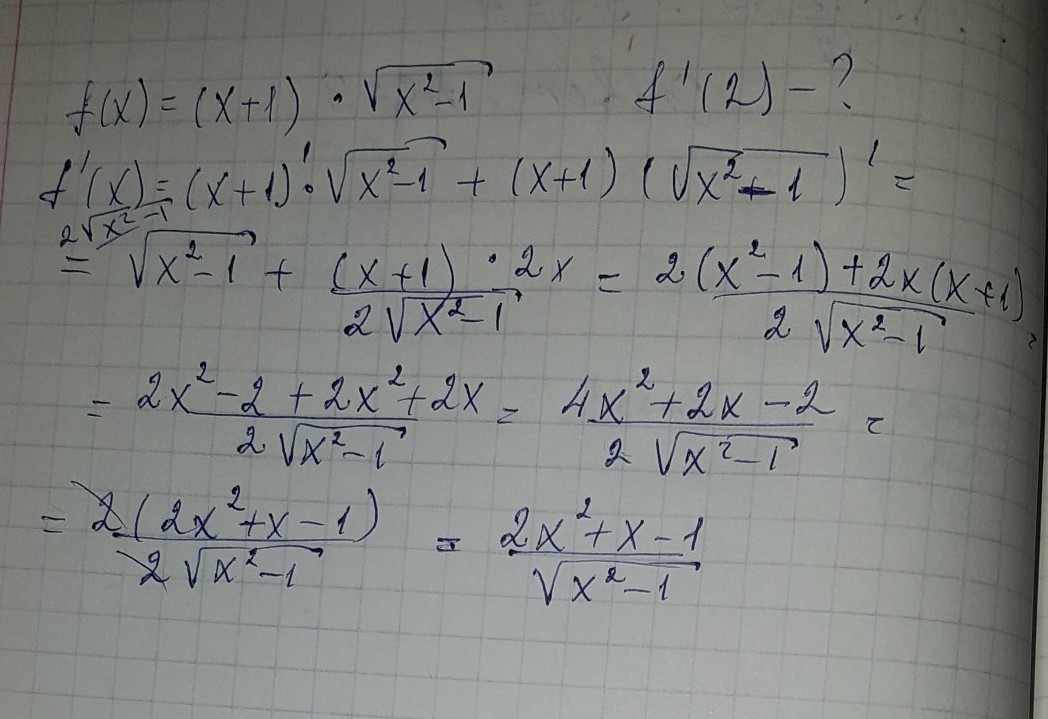 f(x) = (x+1) · √(x²-1) f'(2) - ?
f'(x) = (x+1)' · √(x²-1) + (x+1) (√(x²-1))' =
2√(x²-1)
= √(x²-1) + ((x+1) · 2x)/(2√(x²-1)) = (2(x²-1)+2x(x+1))/(2√(x²-1)) =
= (2x²-2+2x²+2x)/(2√(x²-1)) = (4x²+2x-2)/(2√(x²-1)) =
= (2(2x²+x-1))/(2√(x²-1)) = (2x²+x-1)/(√(x²-1))